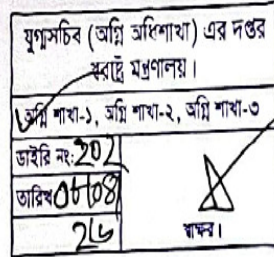 যুগ্মসচিব (অগ্নি অধিশাখা) এর দপ্তর
স্বরাষ্ট্র মন্ত্রণালয়।
অগ্নি শাখা-১, অগ্নি শাখা-২, অগ্নি শাখা-৩
ডাইরি নং: 202
তারিখ
স্বাক্ষর।